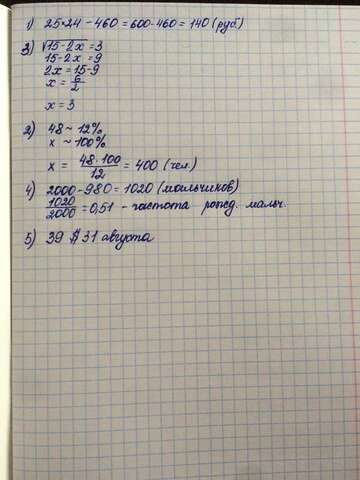 1) 25·24 - 460 = 600 - 460 = 140 (руб.)
3) √15-2x = 3
15 - 2x = 9
2x = 15-9
x = 6/2
x = 3
2) 48 ~ 12%
x ~ 100%
x = 48·100/12 = 400 (чел.)
4) 2000 - 980 = 1020 (мальчиков)
1020/2000 = 0,51 - частота рожд. мальч.
5) 39 31 августа